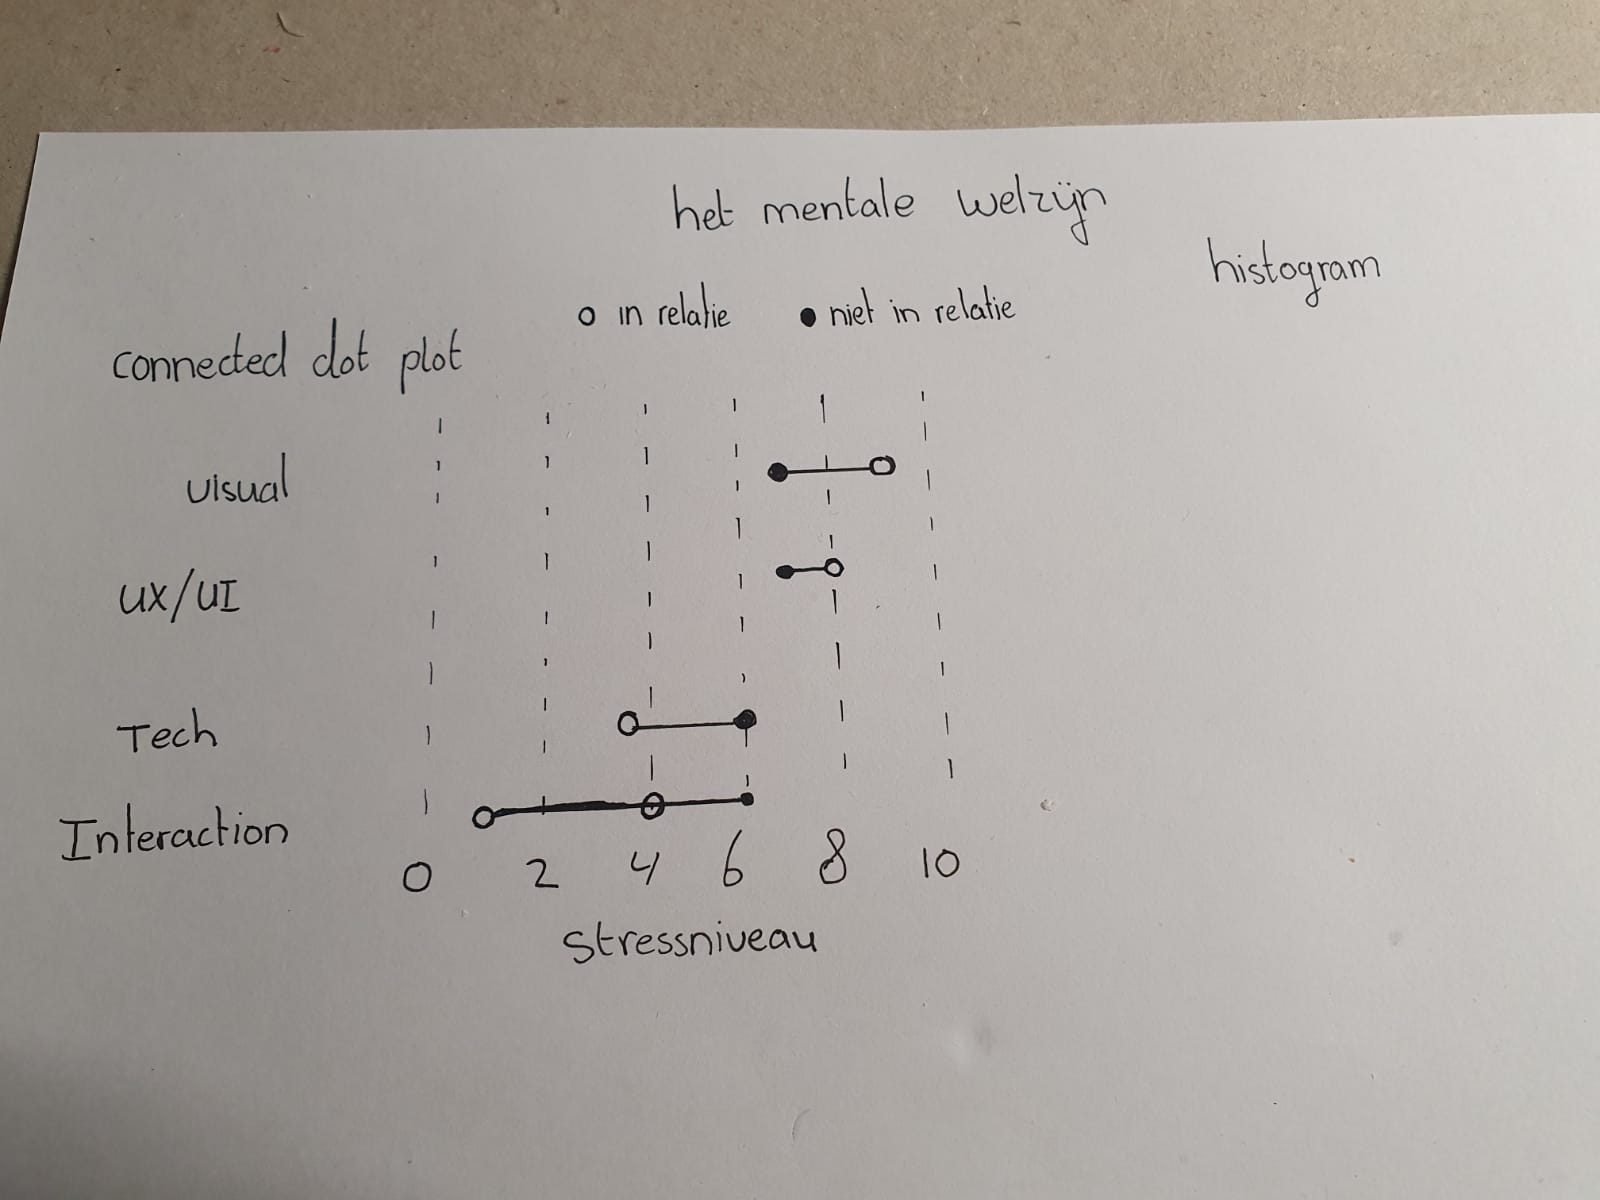 het mentale welzijn
histogram
in relatie
niet in relatie
connected dot plot
visual
UX/UI
Tech
Interaction
0 2 4 6 8 10
stressniveau